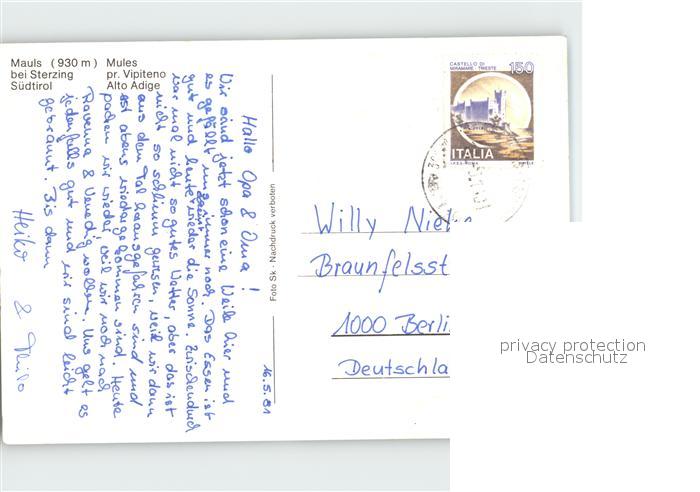 Mauls (930 m) Mules
bei Sterzing pr. Vipiteno
Südtirol Alto Adige
16.5.81
Hallo Opa & Oma!
Wir sind jetzt schon eine Weile hier und
es gefällt uns immer noch. Das Essen ist
gut und heute wieder die Sonne. Zwischendurch
war mal nicht so gutes Wetter, aber das ist
nicht so schlimm gewesen, weil wir dann
aus dem Tal herausgefahren sind und
erst abens wiedergekommen sind. Heute
packen wir wieder, weil wir noch nach
Ravenna & Venedig wollen. Uns geht es
jedenfalls gut und wir sind leicht
gebräunt. Bis dann
Heiko & Thilo
Foto SK · Nachdruck verboten
CASTELLO DI
MIRAMARE - TRIESTE
150
ITALIA
Willy
Braunfelsst
1000 Berli
Deutschla
privacy protection
Datenschutz